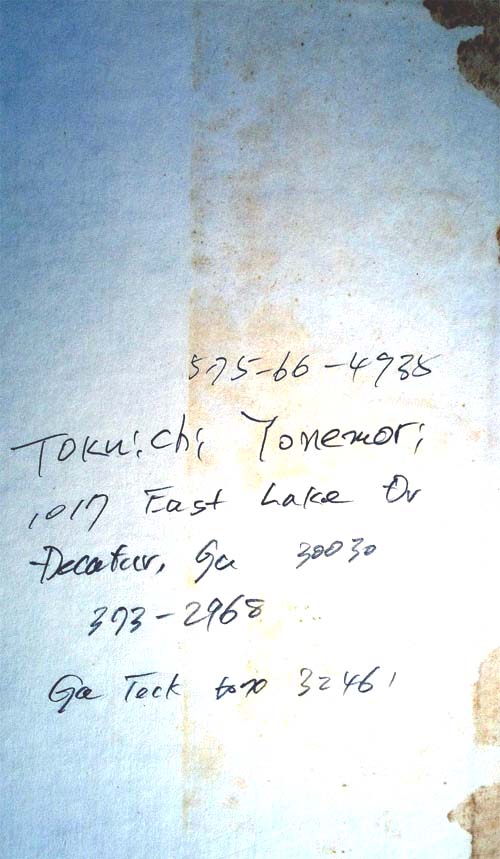 575-66-4935
Tokuichi Yonemori
1017 East Lake Dr
Decatur, Ga 30030
373-2968
Ga Teck box 32461